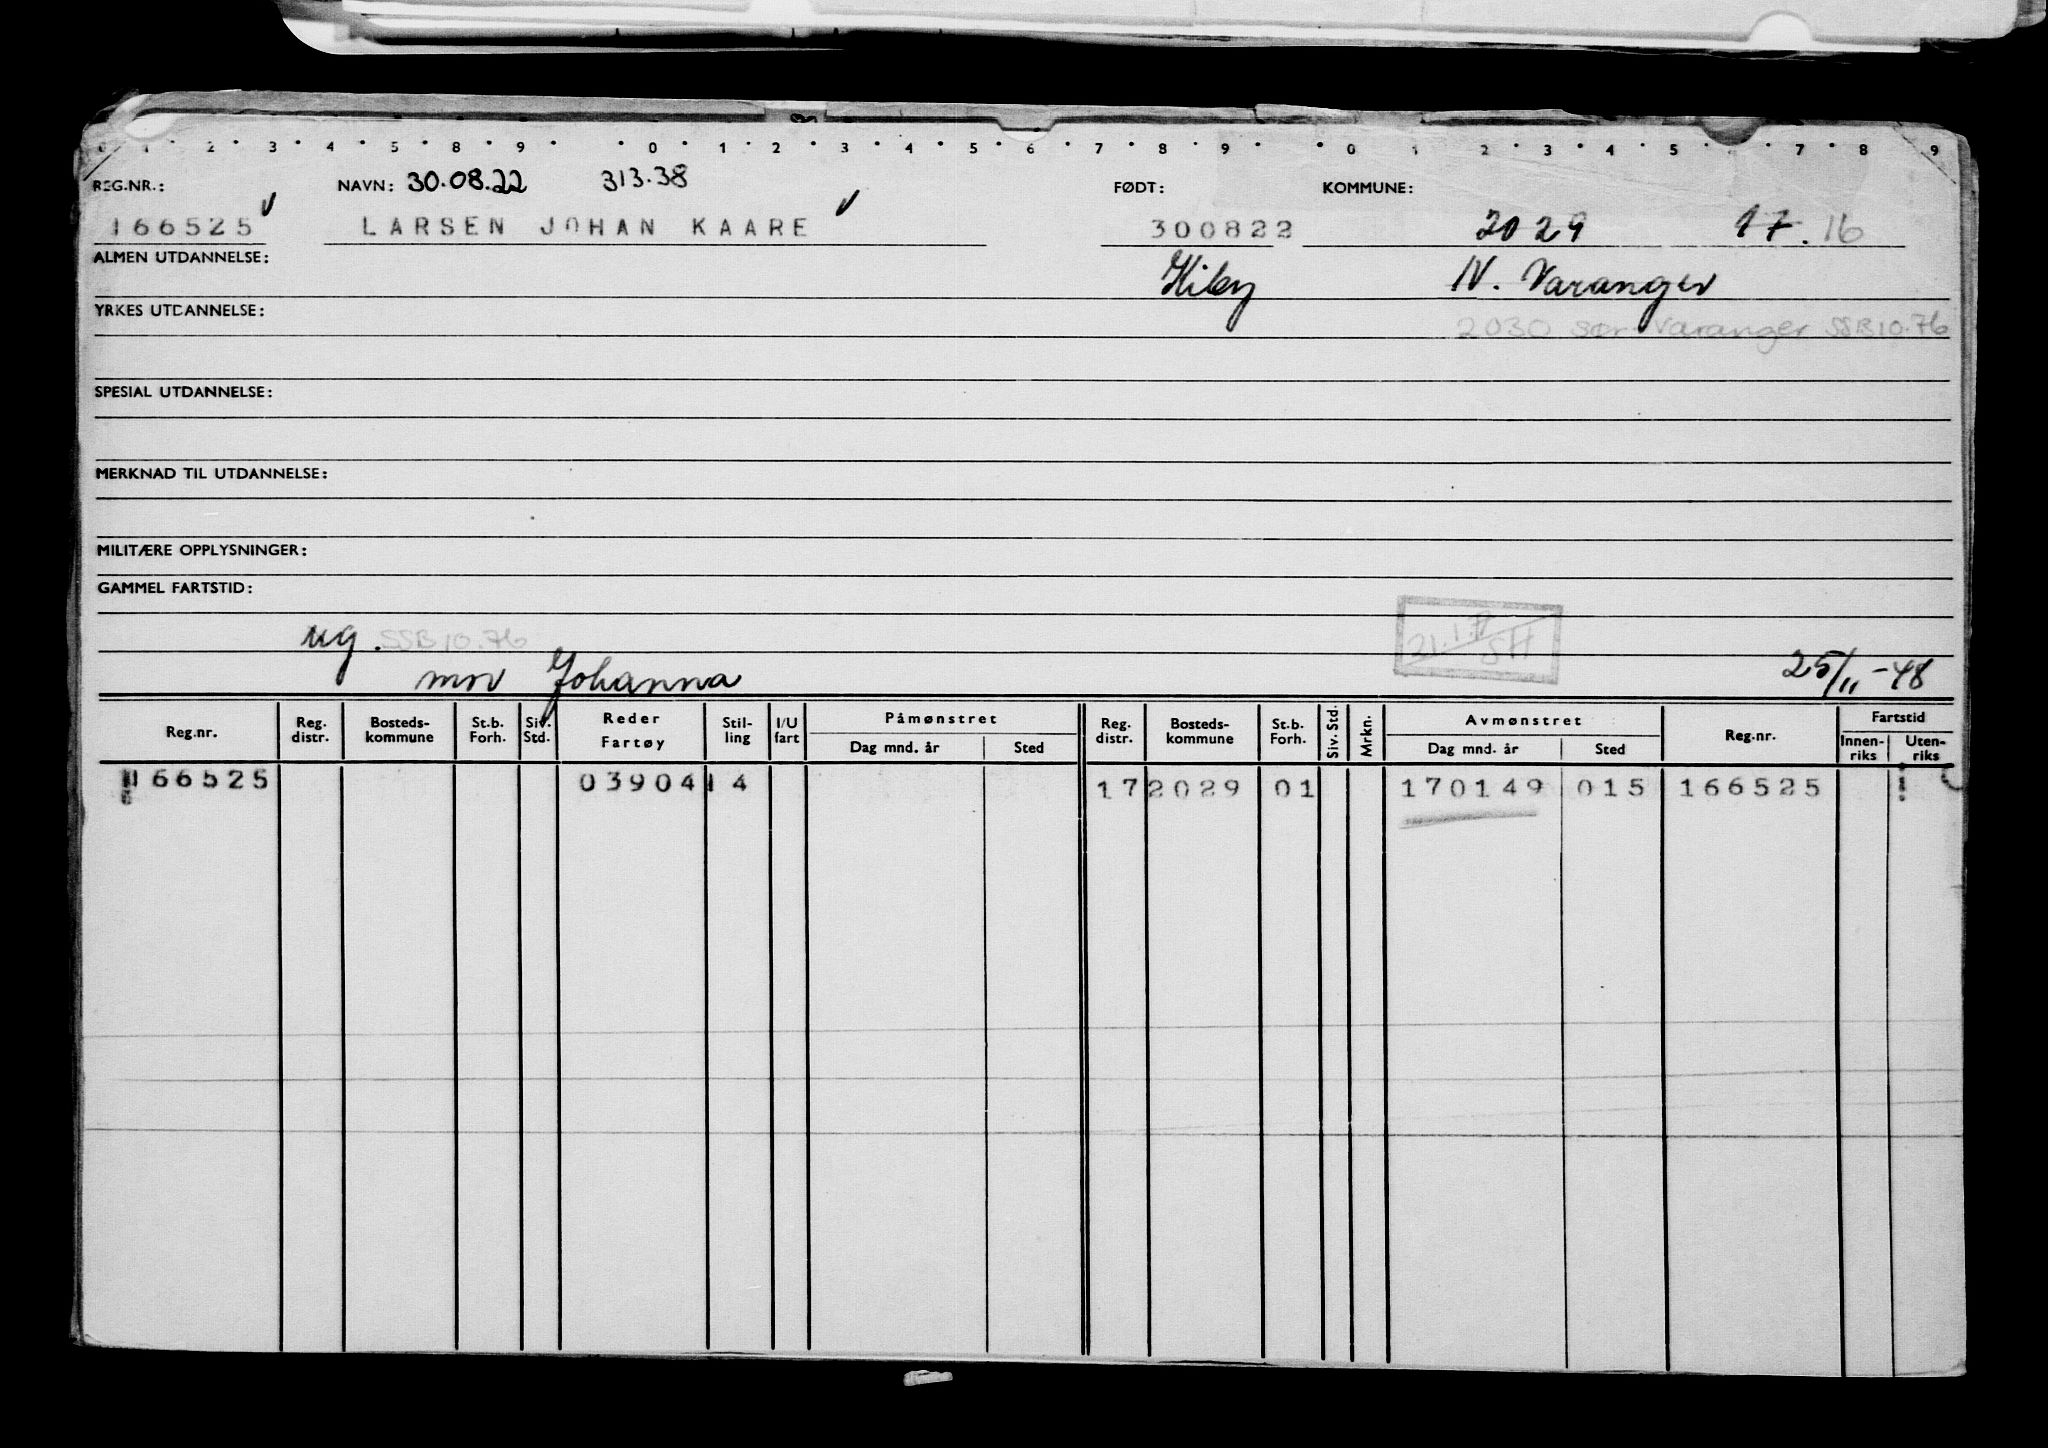 0 1 2 3 4 5 6 8 9 0 1 2 3 4 5 6 7 8 9 0 1 2 3 4 5 7 8 9
REG.NR.: NAVN: 30.08.22 313.38 FØDT: KOMMUNE:
166525 LARSEN JOHAN KAARE 300822 2029 17. 16
ALMEN UTDANNELSE: Kiby N. Varanger
YRKES UTDANNELSE: 2030 Sør-Varanger SSB10.76
SPESIAL UTDANNELSE:
MERKNAD TIL UTDANNELSE:
MILITÆRE OPPLYSNINGER:
GAMMEL FARTSTID:
ug. SSB10.76 21.1. SH
mor Johanna 25/11-48
Reg.nr. Reg. distr. Bosteds-kommune St.b. Forh. Siv. Std. Reder Fartøy Stil-ling I/U fart Påmønstret Dag mnd. år Sted Reg. distr. Bosteds-kommune St.b. Forh. Siv. Std. Mrkn. Avmønstret Dag mnd. år Sted Reg.nr. Fartstid Innen-riks Uten-riks
166525 039041 4 17 2029 01 170149 015 166525